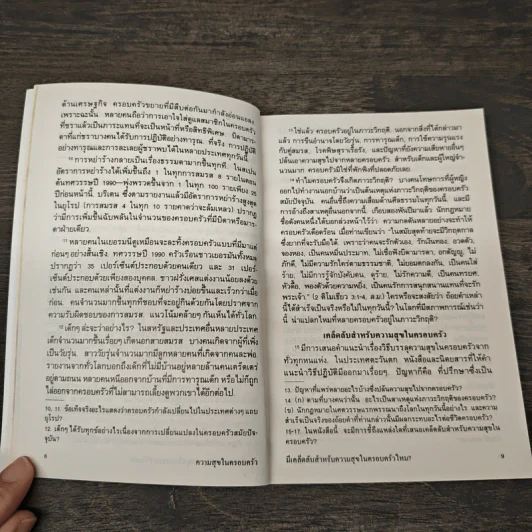 ด้านเศรษฐกิจ ครอบครัวขยายที่มีสืบต่อกันมากำลังอ่อนแอลง
เพราะฉะนั้น หลายคนถือว่าการเอาใจใส่ดูแลสมาชิกในครอบครัว
ที่ชราแล้วเป็นภาระแทนที่จะเป็นหน้าที่หรือสิทธิพิเศษ บิดามาร-
ดาที่แก่ชราบางคนได้รับการปฏิบัติอย่างทารุณ. ที่จริง การปฏิบัติ
อย่างทารุณและการละเลยผู้ชราพบได้ในหลายประเทศทุกวันนี้.
10 การหย่าร้างกลายเป็นเรื่องธรรมดามากขึ้นทุกที. ในสเปน
อัตราการหย่าร้างได้เพิ่มขึ้นถึง 1 ในทุกการสมรส 8 รายในตอน
ต้นทศวรรษปี 1990—พุ่งพรวดขึ้นจาก 1 ในทุก 100 รายเพียง 25
ปีก่อนหน้านี้. บริเตน ซึ่งตามรายงานแล้วมีอัตราการหย่าร้างสูงสุด
ในยุโรป (การสมรส 4 ในทุก 10 รายคาดว่าจะล้มเหลว) ปรากฏ
ว่ามีการเพิ่มขึ้นฉับพลันในจำนวนของครอบครัวที่มีบิดาหรือมาร-
ดาฝ่ายเดียว.
11 หลายคนในเยอรมนีดูเหมือนจะละทิ้งครอบครัวแบบที่มีมาแต่
ก่อนๆอย่างสิ้นเชิง. ทศวรรษปี 1990 ครัวเรือนชาวเยอรมันทั้งหมด
ปรากฏว่า 35 เปอร์เซ็นต์ประกอบด้วยคนเดียว และ 31 เปอร์-
เซ็นต์ประกอบด้วยเพียงสองบุคคล. ชาวฝรั่งเศสแต่งงานน้อยลงด้วย
เช่นกัน และคนเหล่านั้นที่แต่งงานก็หย่าร้างบ่อยขึ้นและเร็วกว่าเมื่อ
ก่อน. คนจำนวนมากขึ้นทุกทีชอบที่จะอยู่กินด้วยกันโดยปราศจาก
ความรับผิดชอบของการสมรส. แนวโน้มคล้ายๆ กันเห็นได้ทั่วโลก.
12 เด็กๆ ล่ะจะว่าอย่างไร? ในสหรัฐและประเทศอื่นหลายประเทศ
เด็กจำนวนมากขึ้นเรื่อยๆ เกิดนอกสายสมรส บางคนเกิดจากผู้ที่เพิ่ง
เป็นวัยรุ่น. สาววัยรุ่นจำนวนมากมีลูกหลายคนที่เกิดจากคนละพ่อ.
รายงานจากทั่วโลกบอกถึงเด็กที่ไม่มีบ้านอยู่หลายล้านคนเตร็ดเตร่
อยู่ตามถนน หลายคนหนีออกจากบ้านที่มีการทารุณเด็ก หรือไม่ก็ถูก
ไล่ออกจากครอบครัวที่ไม่สามารถเลี้ยงดูพวกเขาได้อีกต่อไป.
10, 11. ข้อเท็จจริงอะไรแสดงว่าครอบครัวกำลังเปลี่ยนไปในประเทศต่างๆ แถบ
ยุโรป?
12. เด็กๆ ได้รับทุกข์อย่างไรเนื่องจากการเปลี่ยนแปลงในครอบครัวสมัยปัจ-
จุบัน?
8
ความสุขในครอบครัว
13 ใช่แล้ว ครอบครัวอยู่ในภาวะวิกฤติ. นอกจากสิ่งที่ได้กล่าวมา
แล้ว การขืนอำนาจโดยวัยรุ่น, การทารุณเด็ก, การใช้ความรุนแรง
กับคู่สมรส, โรคพิษสุราเรื้อรัง, และปัญหาที่ยังความเสียหายอื่นๆ
ปล้นเอาความสุขไปจากหลายครอบครัว. สำหรับเด็กและผู้ใหญ่จำ-
นวนมาก ครอบครัวมิใช่ที่พักพิงที่ปลอดภัยเลย!
14 ทำไมครอบครัวจึงเกิดภาวะวิกฤติ? บางคนโทษการที่ผู้หญิง
ออกไปทำงานนอกบ้านว่าเป็นต้นเหตุแห่งภาวะวิกฤติของครอบครัว
สมัยปัจจุบัน. คนอื่นชี้ถึงความเสื่อมด้านศีลธรรมในทุกวันนี้. และมี
การอ้างถึงสาเหตุอื่นนอกจากนี้. เกือบสองพันปีมาแล้ว นักกฎหมายมี
ชื่อดังคนหนึ่งได้บอกล่วงหน้าไว้ว่า ความกดดันหลายอย่างจะทำให้
ครอบครัวเดือดร้อน เมื่อท่านเขียนว่า: "ในสมัยสุดท้ายจะมีวิกฤตกาล
ซึ่งยากที่จะรับมือได้. เพราะว่าคนจะรักตัวเอง, รักเงินทอง, อวดตัว,
จองหอง, เป็นคนหมิ่นประมาท, ไม่เชื่อฟังบิดามารดา, อกตัญญู, ไม่
ภักดี, ไม่มีความรักใคร่ตามธรรมชาติ, ไม่ยอมตกลงกัน, เป็นคนใส่
ร้าย, ไม่มีการรู้จักบังคับตน, ดุร้าย, ไม่รักความดี, เป็นคนทรยศ,
หัวดื้อ, พองตัวด้วยความหยิ่ง, เป็นคนรักการสนุกสนานแทนที่จะรัก
พระเจ้า." (2 ติโมเธียว 3:1-4, ล.ม.) ใครหรือจะสงสัยว่า ถ้อยคำเหล่า
นี้ได้สำเร็จเป็นจริงหรือไม่ในทุกวันนี้? ในโลกที่มีสภาพการณ์เช่นว่า
นี้ น่าแปลกไหมที่หลายครอบครัวอยู่ในภาวะวิกฤติ?
เคล็ดลับสำหรับความสุขในครอบครัว
15 มีการเสนอคำแนะนำเรื่องวิธีบรรลุความสุขในครอบครัวจาก
ทั่วทุกหนแห่ง. ในประเทศตะวันตก หนังสือและนิตยสารที่ให้คำ
แนะนำวิธีปฏิบัติมีออกมาเรื่อยๆ. ปัญหาก็คือ ที่ปรึกษาซึ่งเป็น
13. ปัญหาที่แพร่หลายอะไรบ้างซึ่งปล้นความสุขไปจากครอบครัว?
14. (ก) ตามที่บางคนว่านั้น อะไรเป็นสาเหตุแห่งภาวะวิกฤติของครอบครัว?
(ข) นักกฎหมายในศตวรรษแรกพรรณนาถึงโลกในทุกวันนี้อย่างไร และความ
สำเร็จเป็นจริงของถ้อยคำที่ท่านกล่าวนั้นมีผลกระทบอะไรต่อชีวิตครอบครัว?
15-17. ในหนังสือนี้ จะมีการชี้ถึงแหล่งใดที่เสนอเคล็ดลับสำหรับความสุขใน
ครอบครัว?
มีเคล็ดลับสำหรับความสุขในครอบครัวไหม?
9